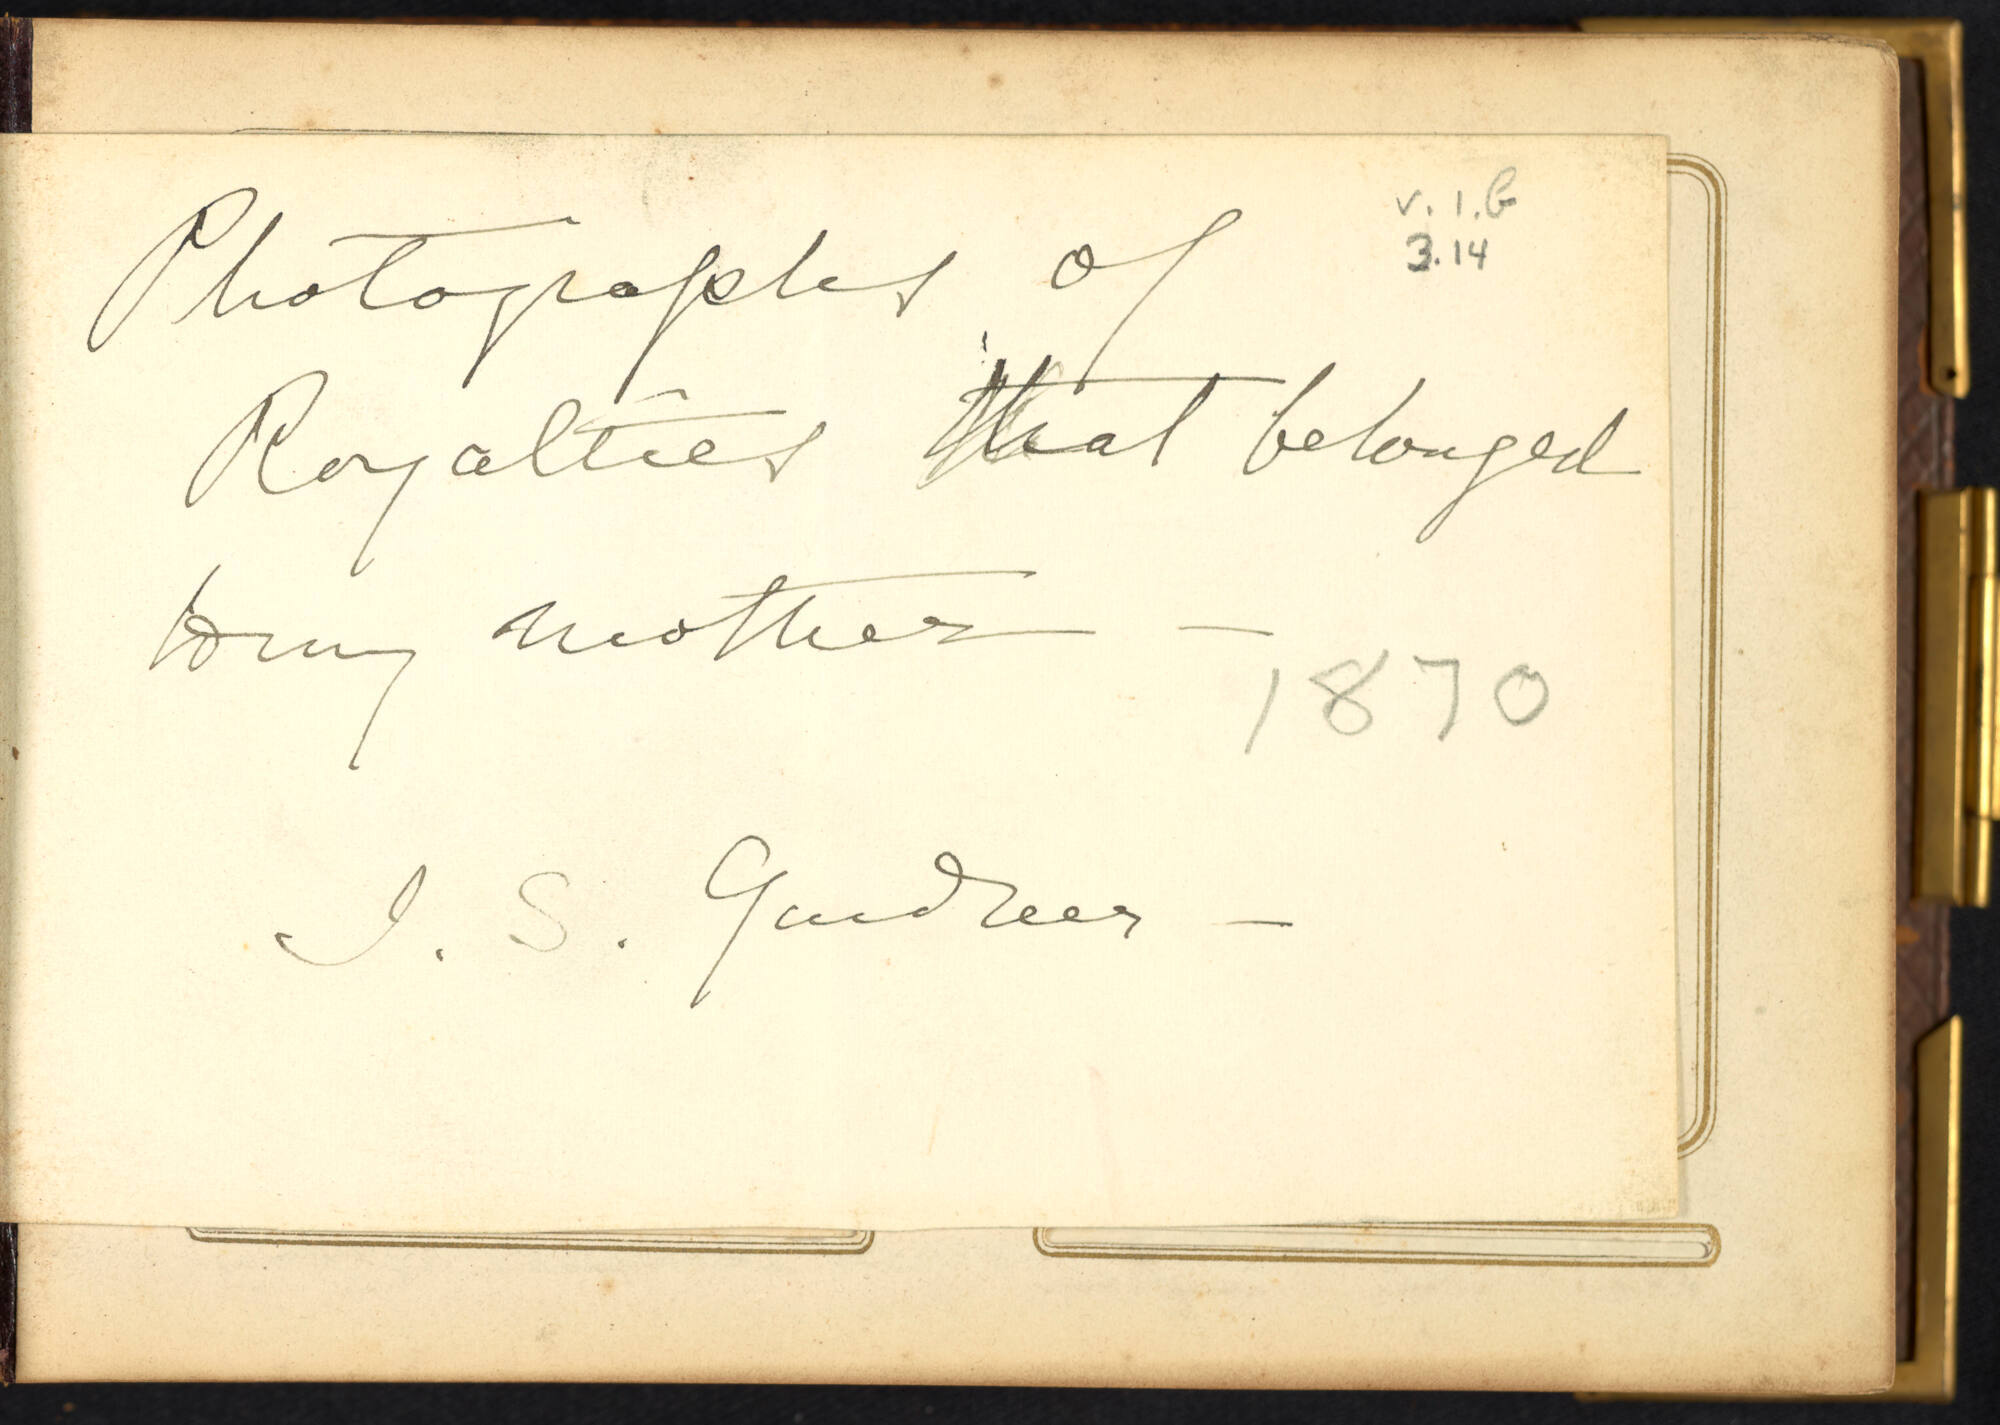 v. 1. b
3.14
Photographs of
Royalties that belonged
to my mother —
1870
I. S. Gardner —